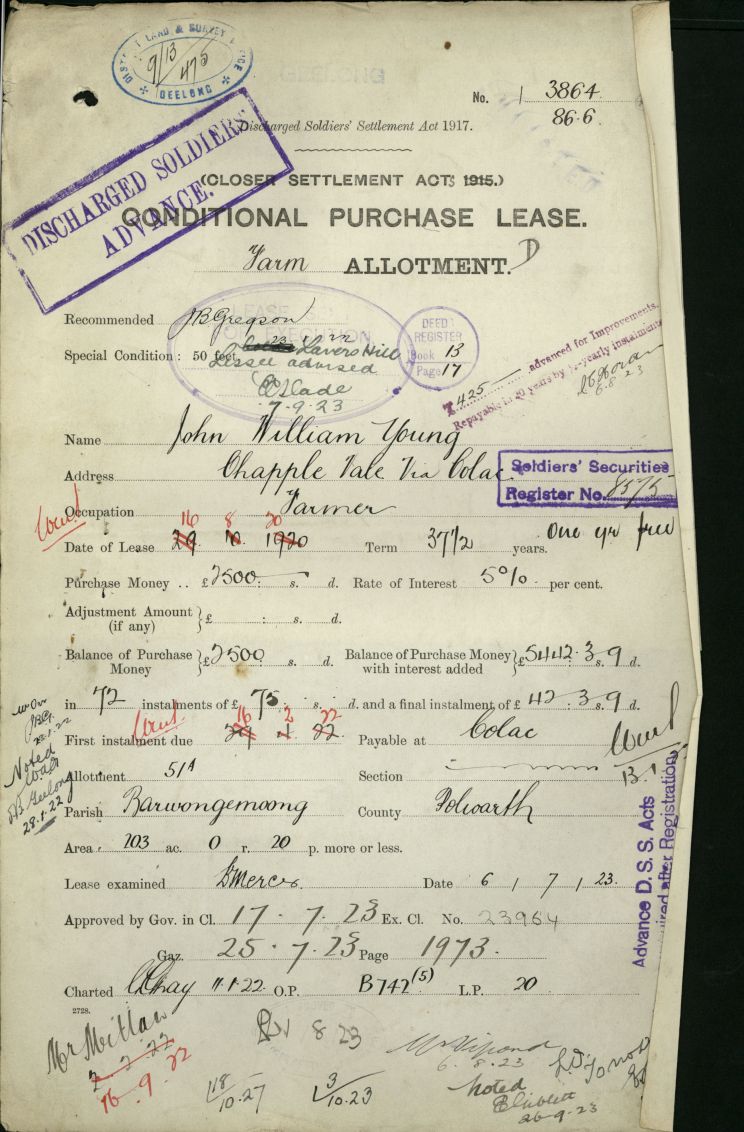 DISTRICT LAND & SURVEY OFFICE
9/13
475
GEELONG
No. 3864
86.6
Discharged Soldiers' Settlement Act 1917.
DISCHARGED SOLDIERS'
ADVANCE.
(CLOSER SETTLEMENT ACTS 1915.)
CONDITIONAL PURCHASE LEASE.
Farm ALLOTMENT. D
Recommended J B Gregson
Special Condition : 50 feet Lavers Hill
Lessee advised
Slade
7-9-23
DEED
REGISTER
Book 13
Page 17
£425 advanced for Improvements.
Repayable in 20 years by ½-yearly instalments
6.8.23
Name John William Young
Address Chapple Vale Via Colac
Soldiers' Securities
Register No. 8575
Occupation Farmer
16 8 20
Date of Lease 1920 Term 37 1/2 years. One yr free
Purchase Money .. £2500 : s. d. Rate of Interest 5% per cent.
Adjustment Amount (if any) } £ : s. d.
Balance of Purchase Money } £2500 : s. d. Balance of Purchase Money with interest added } £5442 : 3 s. 9 d.
in 72 instalments of £ 75 : s. d. and a final instalment of £ 42 : 3 s. 9 d.
16 2 22
First instalment due 22 Payable at Colac
Noted
Geelong
28.1.22
Allotment 51A Section
Parish Barwongemoong County Polwarth
Area 203 ac. 0 r. 20 p. more or less.
Advance D. S. S. Acts
after Registration
Lease examined Date 6 / 7 / 23.
Approved by Gov. in Cl. 17 . 7 . 23 Ex. Cl. No. 23964
Gaz. 25 . 7 . 23 Page 1973.
Charted 11.1.22 O.P. B742(5) L.P. 20
2728.
Mr
2.2.22
16.9.22
8 23
18/10.27
3/10.23
6.8.23
Noted
26-9-23